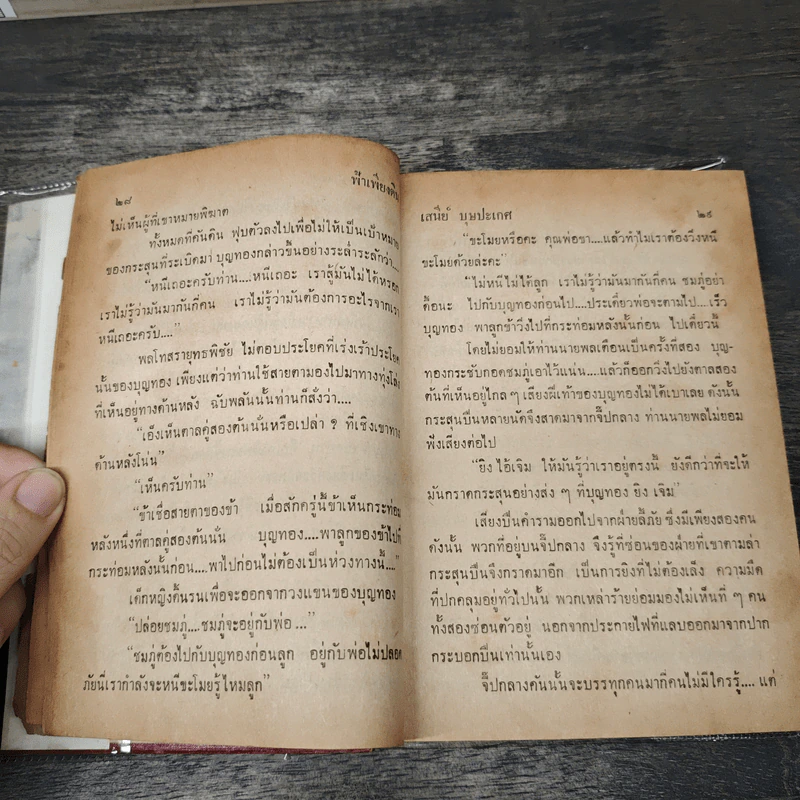 ๒๘
ฟ้าเพียงดิน
ไม่เห็นผู้ที่เขาหมายพิฆาต
ทั้งหมดที่คันดิน ฟุบตัวลงไปเพื่อไม่ให้เป็นเป้าหมาย
ของกระสุนที่ระเบิดมา บุญทองกล่าวขึ้นอย่างระล่ำระลักว่า....
“หนีเถอะครับท่าน....หนีเถอะ เราสู้มันไม่ได้หรอก
เราไม่รู้ว่ามันมากันกี่คน เราไม่รู้ว่ามันต้องการอะไรจากเรา
หนีเถอะครับ....”
พลโทสรายุทธพิชัย ไม่ตอบประโยคที่เร่งเร้าประโยค
นั้นของบุญทอง เพียงแต่ว่าท่านใช้สายตามองไปมาทางทุ่งโล่ง
ที่เห็นอยู่ทางด้านหลัง ฉับพลันนั้นท่านก็สั่งว่า....
“เอ็งเห็นตาลคู่สองต้นนั่นหรือเปล่า ? ที่เชิงเขาทาง
ด้านหลังโน่น”
“เห็นครับท่าน”
“ข้าเชื่อสายตาของข้า เมื่อสักครู่นี้ข้าเห็นกระท่อม
หลังหนึ่งที่ตาลคู่สองต้นนั่น บุญทอง....พาลูกของข้าไปที่
กระท่อมหลังนั้นก่อน....พาไปก่อนไม่ต้องเป็นห่วงทางนี้....”
เด็กหญิงดิ้นรนเพื่อจะออกจากวงแขนของบุญทอง
“ปล่อยชมภู่....ชมภู่จะอยู่กับพ่อ ...”
“ชมภู่ต้องไปกับบุญทองก่อนลูก อยู่กับพ่อไม่ปลอด
ภัยนี่เรากำลังจะหนีขะโมยรู้ไหมลูก”
เสนีย์ บุษปะเกศ
๒๙
“ขะโมยหรือคะ คุณพ่อขา....แล้วทำไมเราต้องวิ่งหนี
ขะโมยด้วยล่ะคะ”
“ไม่หนีไม่ได้ลูก เราไม่รู้ว่ามันมากันกี่คน ชมภู่อย่า
ดื้อนะ ไปกับบุญทองก่อนไป....ประเดี๋ยวพ่อจะตามไป....เร็ว
บุญทอง พาลูกข้าวิ่งไปที่กระท่อมหลังนั้นก่อน ไปเดี๋ยวนี้
โดยไม่ยอมให้ท่านนายพลเตือนเป็นครั้งที่สอง บุญ-
ทองกระชับกอดชมภู่เอาไว้แน่น....แล้วก็ออกวิ่งไปยังตาลสอง
ต้นที่เห็นอยู่ไกล ๆ เสียงฝีเท้าของบุญทองไม่ได้เบาเลย ดังนั้น
กระสุนปืนหลายนัดจึงสาดมาจากจี๊ปกลาง ท่านนายพลไม่ยอม
ฟังเสียงต่อไป
“ยิง ไอ้เจิม ให้มันรู้ว่าเราอยู่ตรงนี้ ยังดีกว่าที่จะให้
มันกราดกระสุนอย่างส่ง ๆ ที่บุญทอง ยิง เจิม”
เสียงปืนคำรามออกไปจากฝ่ายลี้ภัย ซึ่งมีเพียงสองคน
ดังนั้น พวกที่อยู่บนจี๊ปกลาง จึงรู้ที่ซ่อนของฝ่ายที่เขาตามล่า
กระสุนปืนจึงกราดมาอีก เป็นการยิงที่ไม่ต้องเล็ง ความมืด
ที่ปกคลุมอยู่ทั่วไปนั้น พวกเหล่าร้ายย่อมมองไม่เห็นที่ ๆ คน
ทั้งสองซ่อนตัวอยู่ นอกจากประกายไฟที่แลบออกมาจากปาก
กระบอกปืนเท่านั้นเอง
จี๊ปกลางคันนั้นจะบรรทุกคนมากี่คนไม่มีใครรู้.... แต่